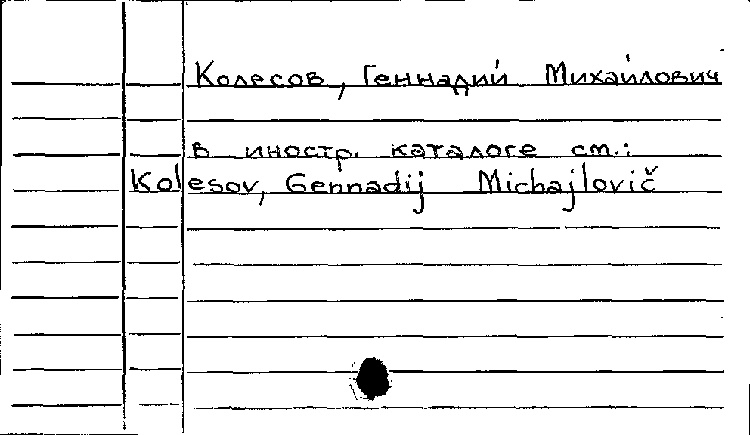 Колесов, Геннадий Михайлович
в иностр. каталоге см.:
Kolesov, Gennadij Michajlovič